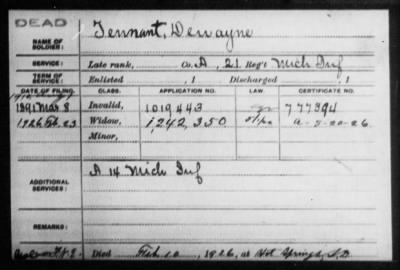 DEAD
NAME OF SOLDIER: Tennant, Dewayne
SERVICE: Late rank, Co. A, 21 Reg't Mich Inf
TERM OF SERVICE: Enlisted , 1 Discharged , 1
DATE OF FILING. CLASS. APPLICATION NO. LAW. CERTIFICATE NO.
1891 Mar 8 Invalid, 1019443 777394
1926 Feb. 23 Widow, 1,242,350 A-5-20-26
Minor,
ADDITIONAL SERVICES: A 14 Mich Inf
REMARKS:
Died Feb 10, 1926, at Hot Springs, S.D.